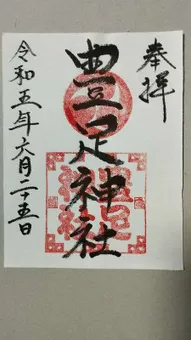 奉拝
豊足神社
令和五年六月二十五日